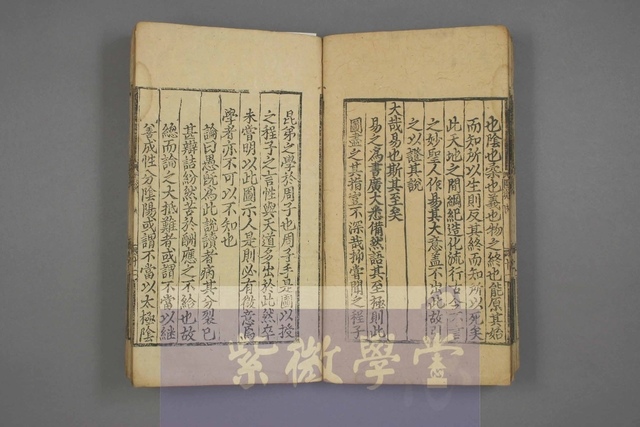 也陰也柔也義也物之終也能原其始
而知所以生則反其終而知所以死矣
此天地之間綱紀造化流行古今不言
之妙聖人作易其大意蓋不出此故引
之以證其說
大哉易也斯其至矣
易之為書廣大悉備然語其至極則此
圖盡之其指豈不深哉抑嘗聞之程子
昆弟之學於周子也周子手是圖以授
之程子之言性與天道多出於此然卒
未嘗明以此圖示人是則必有微意焉
學者亦不可以不知也
論曰愚既為此說讀者病其分裂已
甚辯詰紛然苦於酬應之不給也故
總而論之大抵難者或謂不當以繼
善成性分陰陽或謂不當以太極陰
紫微學堂